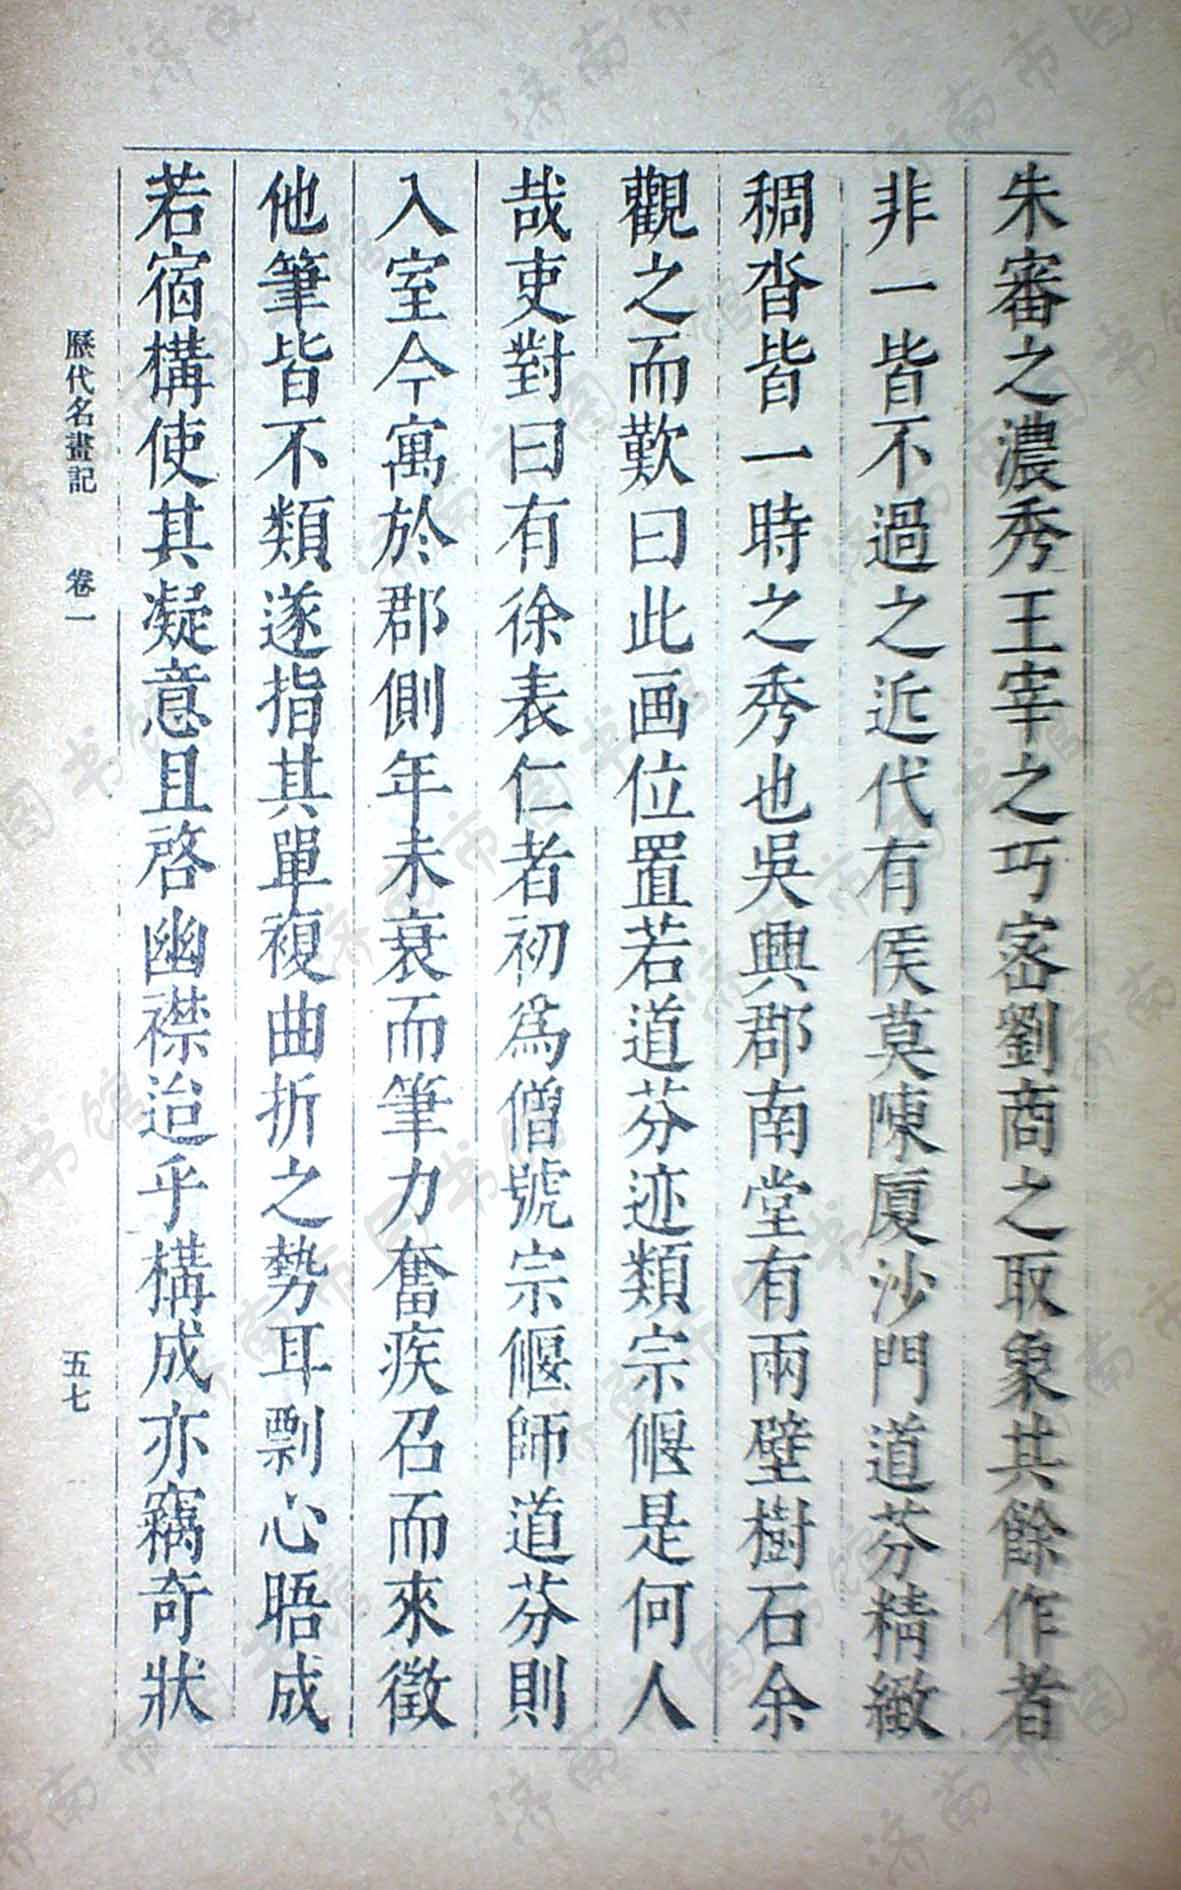 朱審之濃秀王宰之巧密劉商之取象其餘作者
非一皆不過之近代有侯莫陳廈沙門道芬精緻
稠沓皆一時之秀也吳興郡南堂有兩壁樹石余
觀之而歎曰此画位置若道芬迹類宗偃是何人
哉吏對曰有徐表仁者初爲僧號宗偃師道芬則
入室今寓於郡側年未衰而筆力奮疾召而來徵
他筆皆不類遂指其單複曲折之勢耳剽心晤成
若宿構使其凝意且啓幽襟迨乎構成亦竊奇狀
歷代名畫記 卷一 五七
济南市图书馆